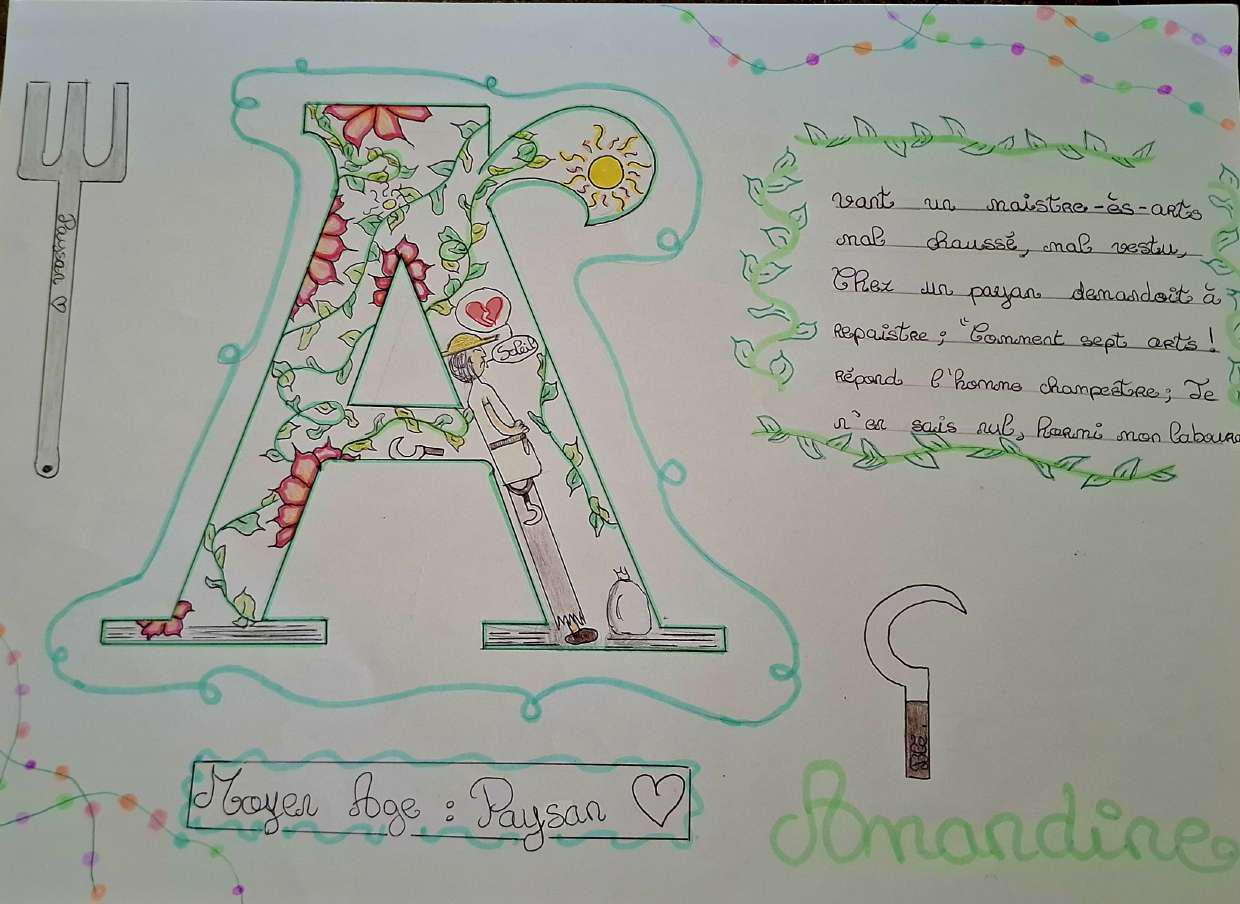 Paysan
vant un maistre-ès-arts
mal chaussé, mal vestu,
Chez un paysan demandoit à
Repaistre ; "Comment sept arts !
Répond l'homme champestre ; Je
n'en sais nul, hormi mon labour
Soleil
Blé.
Moyen Age : Paysan
Amandine